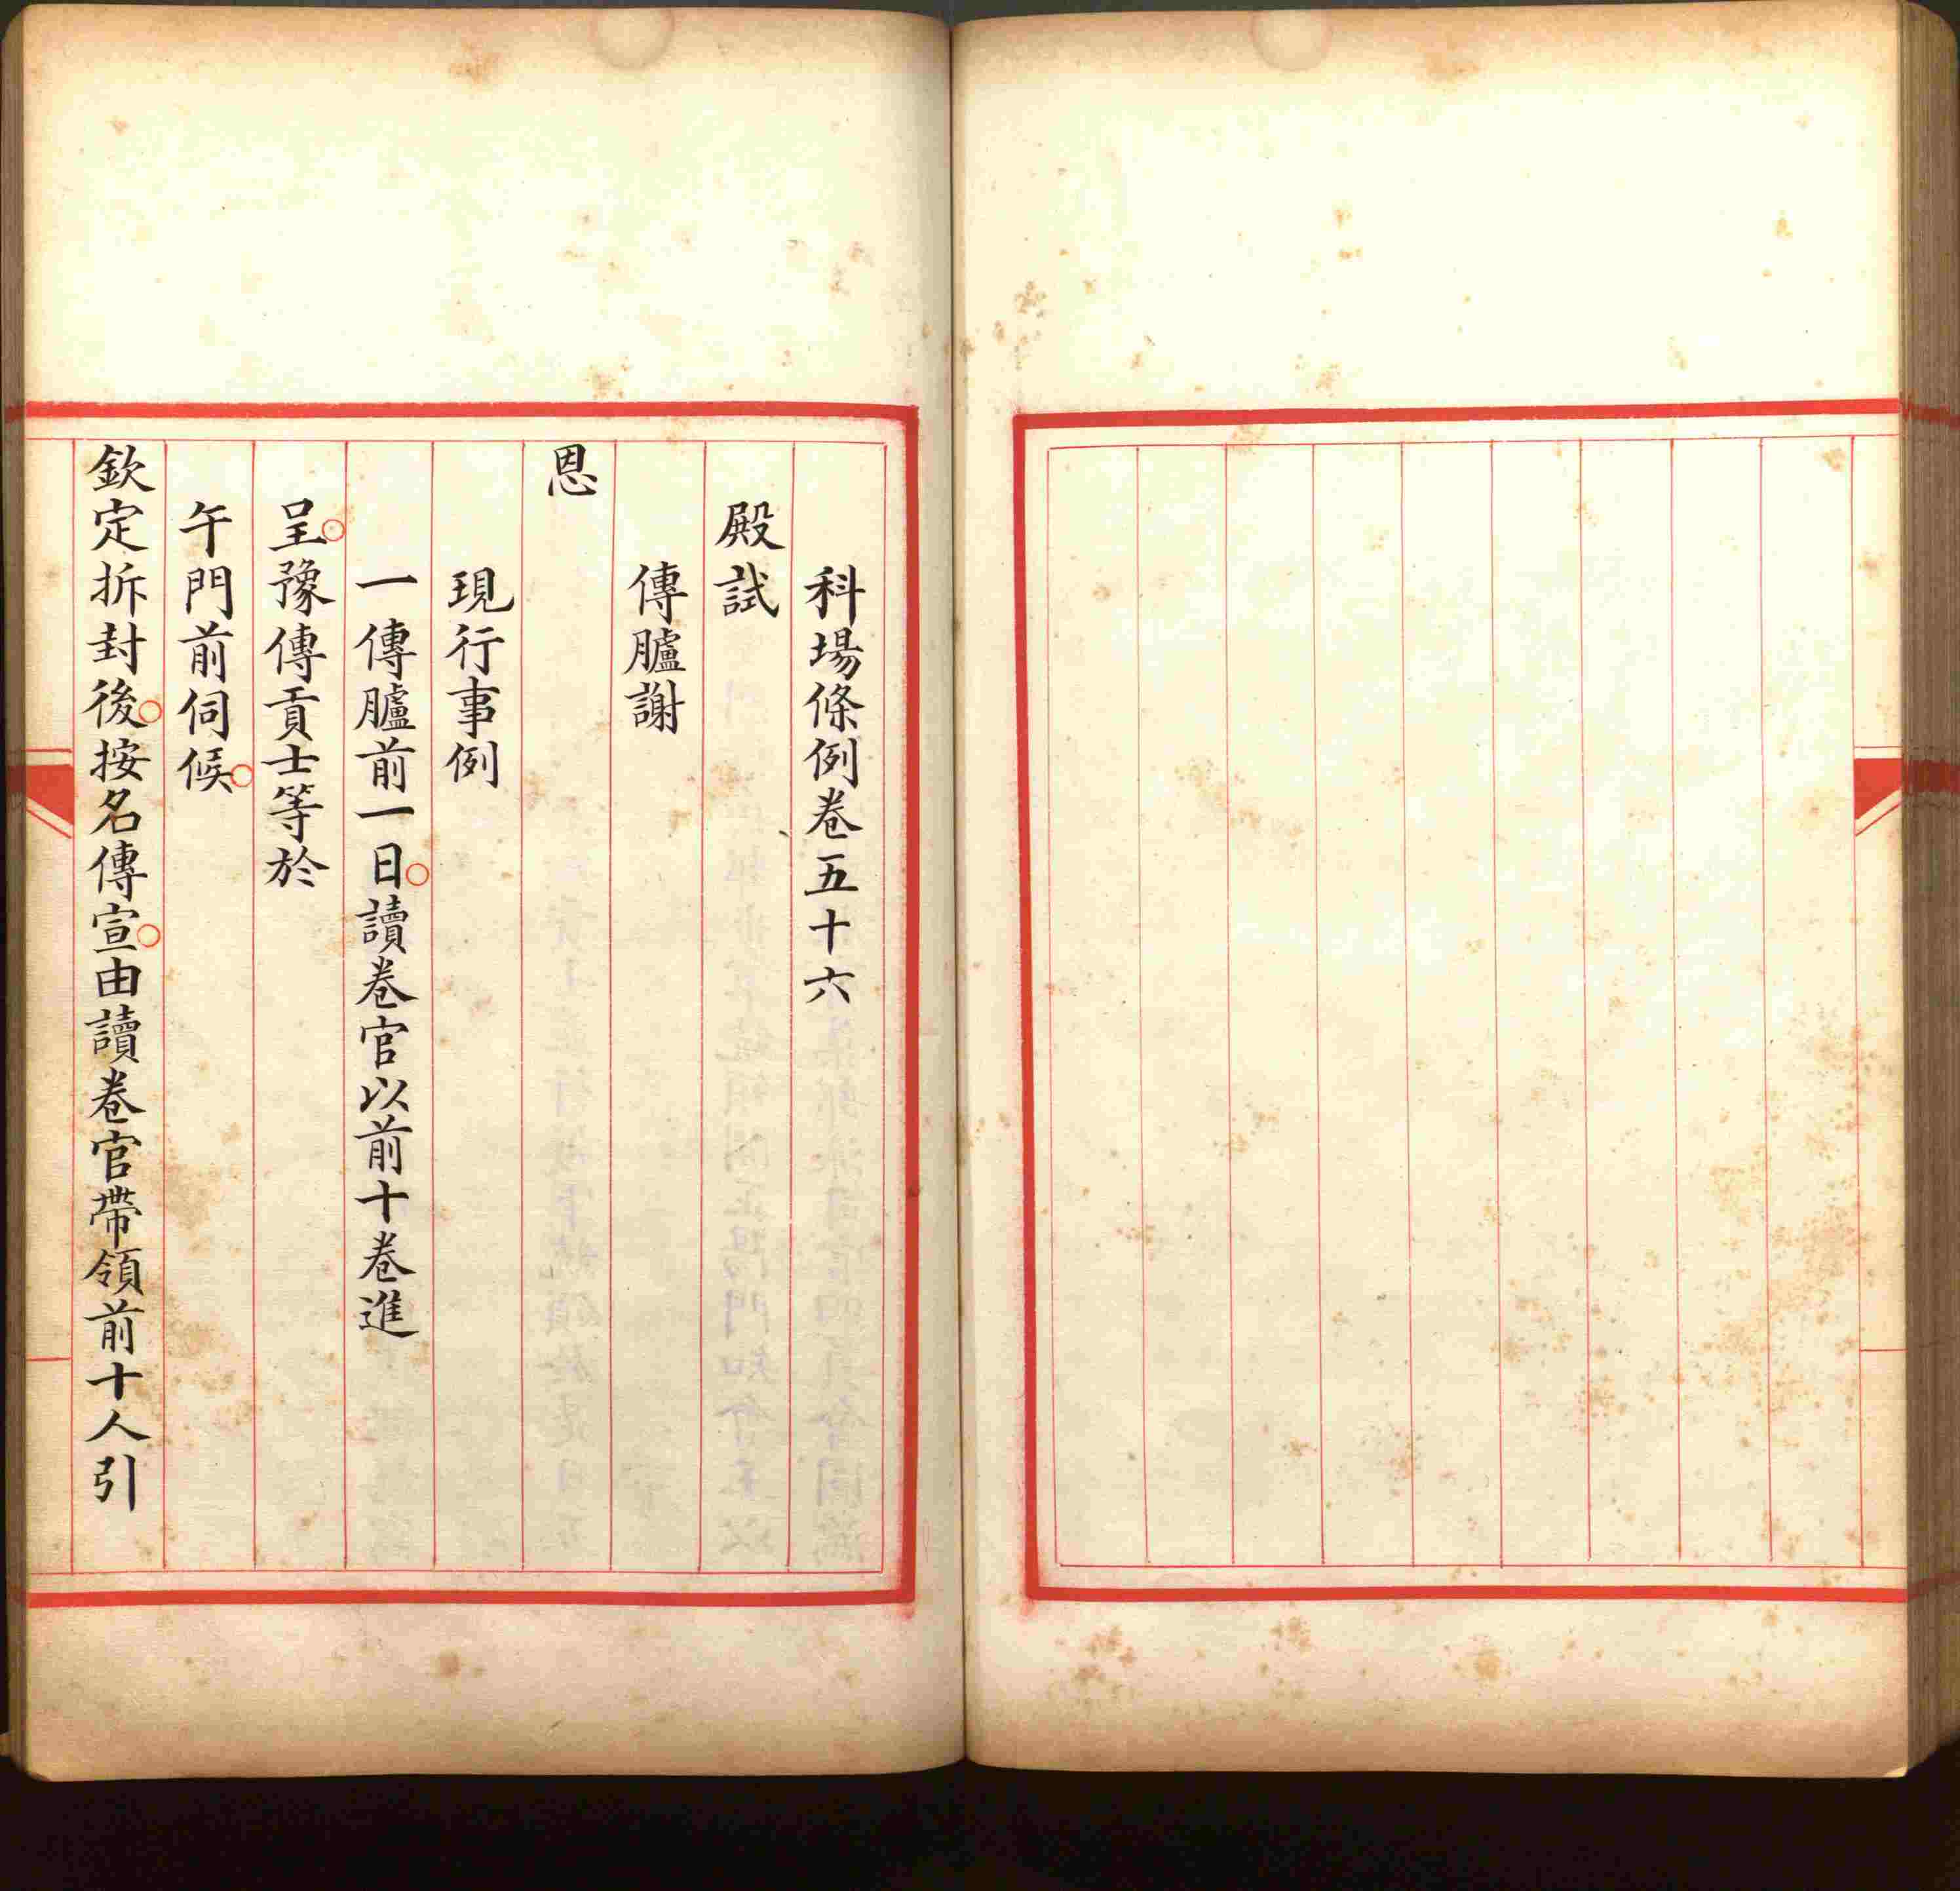 科場條例卷五十六
殿試
傳臚謝
恩
現行事例
一傳臚前一日○讀卷官以前十卷進
呈○豫傳貢士等於
午門前伺候○
欽定拆封後○按名傳宣○由讀卷官帶領前十人引